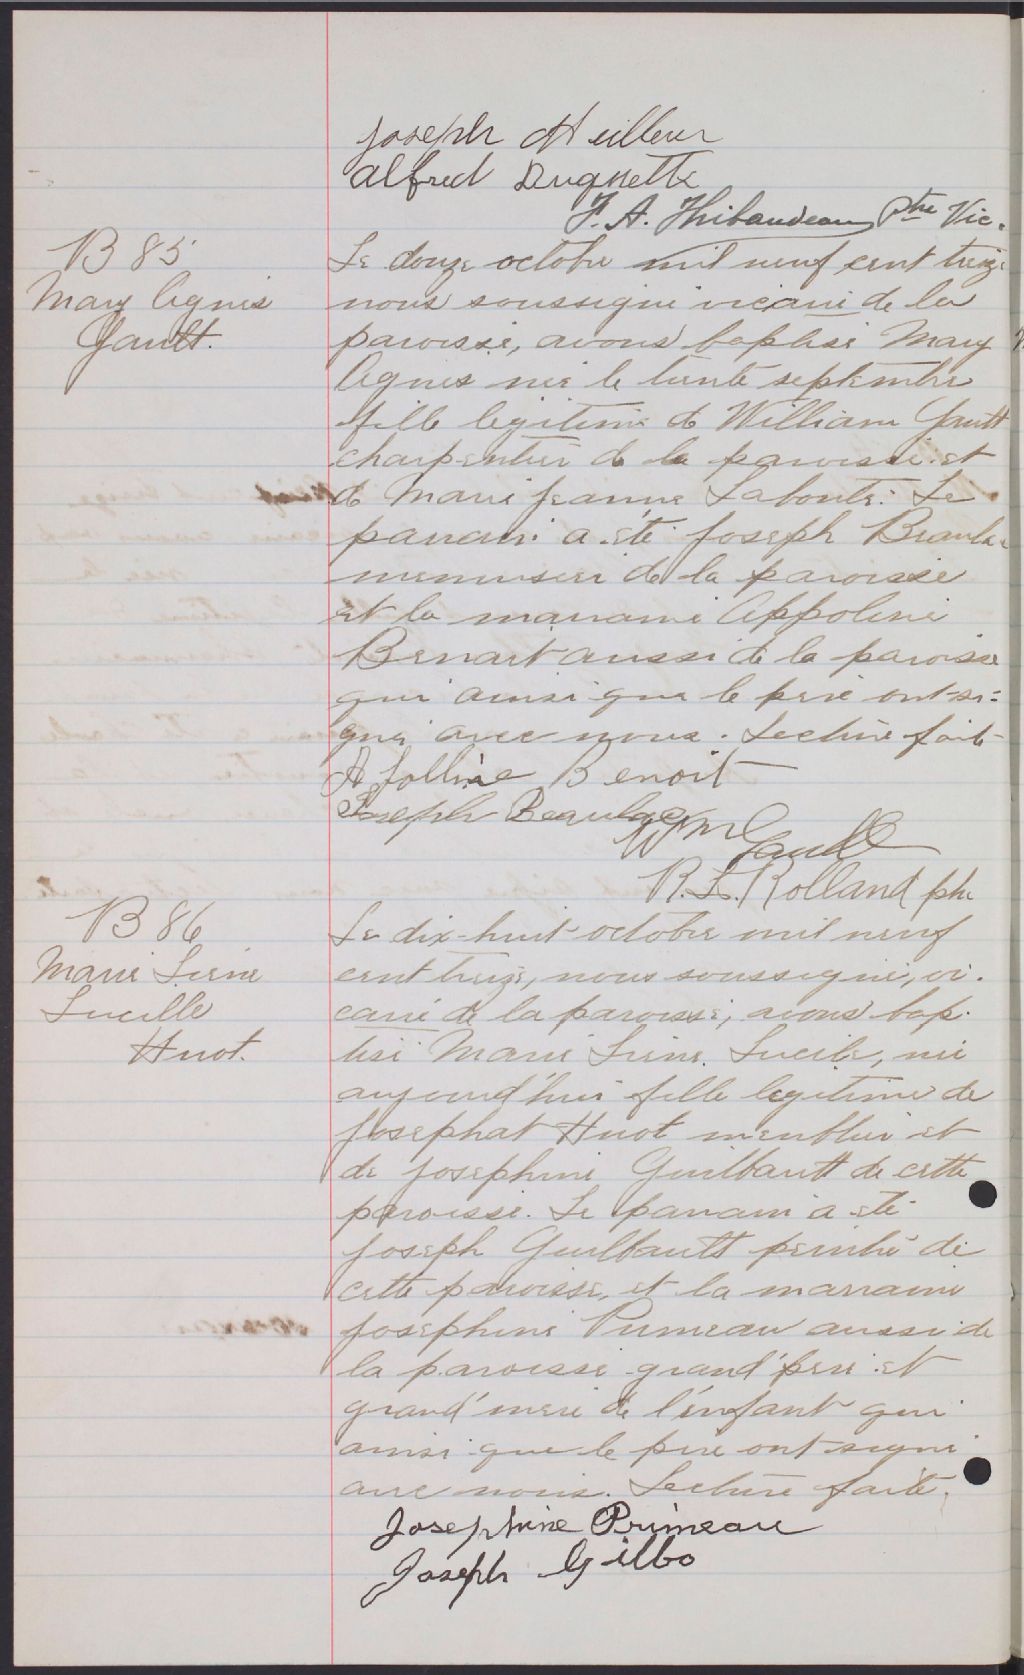 Joseph Meilleur
Alfred Duquette
F. A. Thibaudeau Ptre Vic.
B 85
Mary Agnes
Gault.
Le douze octobre mil neuf cent treize
nous soussigné vicaire de la
paroisse, avons baptisé Mary
Agnes née le trente septembre
fille legitime de William Gault
charpentier de la paroisse et
de Marie Jeanne Labonté. Le
parrain a été Joseph Beaulac
menuisier de la paroisse
et la marraine Appoline
Benoit aussi de la paroisse
qui ainsi que le père ont si=
gné avec nous. Lecture faite
Apolline Benoit
Joseph Beaulac
Wm Gault
R. L. Rolland ptre
B 86
Marie Irène
Lucille
Huot.
Le dix-huit octobre mil neuf
cent treize, nous soussigné, vi.
caire de la paroisse, avons bap.
tisé Marie Irène Lucile, née
aujourd'hui fille legitime de
Josephat Huot meublier et
de Josephine Guilbault de cette
paroisse. Le parrain a été
Joseph Guilbault peintre de
cette paroisse, et la marraine
Josephine Primeau aussi de
la paroisse grand'père et
grand'mère de l'enfant qui
ainsi que le père ont signé
avec nous. Lecture faite.
Josephine Primeau
Joseph Gilbo